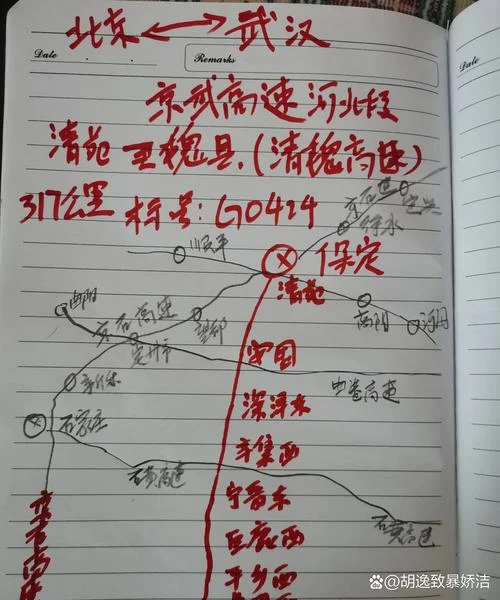 北京 ←→ 武汉
Date
Remarks
Date
京武高速河北段
清苑至魏县.(清魏高速)
317公里 标号:G0424
京石高速
定兴
徐水
顺平
保定
清苑
曲阳
京石高速
望都
高阳
河间
定州市
安国
新乐
曲港高速
深泽东
石家庄
辛集西
石黄高速
宁晋东
石黄高速
巨鹿西
平乡西
京石高速
百家号/胡逸致暴娇洁